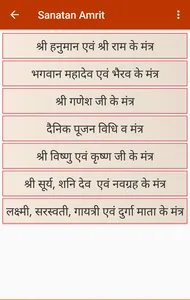 Sanatan Amrit
श्री हनुमान एवं श्री राम के मंत्र
भगवान महादेव एवं भैरव के मंत्र
श्री गणेश जी के मंत्र
दैनिक पूजन विधि व मंत्र
श्री विष्णु एवं कृष्ण जी के मंत्र
श्री सूर्य, शनि देव एवं नवग्रह के मंत्र
लक्ष्मी, सरस्वती, गायत्री एवं दुर्गा माता के मंत्र